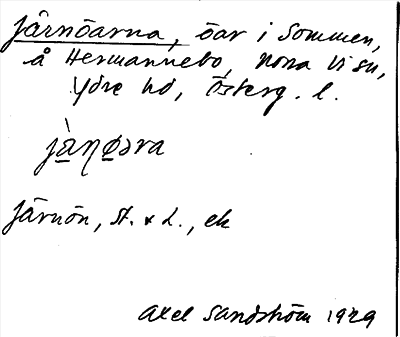 Järnöarna, öar i Sommen,
å Hermannebo, Norra Vi sn,
Ydre hd, Österg. l.
jàŋøəra
Järnön, St. & L., ek
Axel Sandström 1929